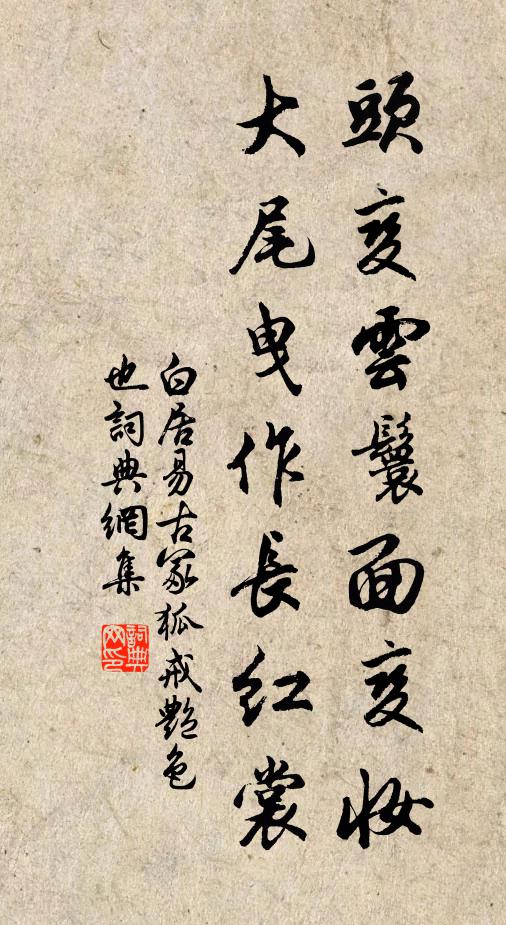 頭變雲鬟面變妝
大尾曳作長紅裳
白居易古冢狐戒艷色
也詞典網集
詞典网印